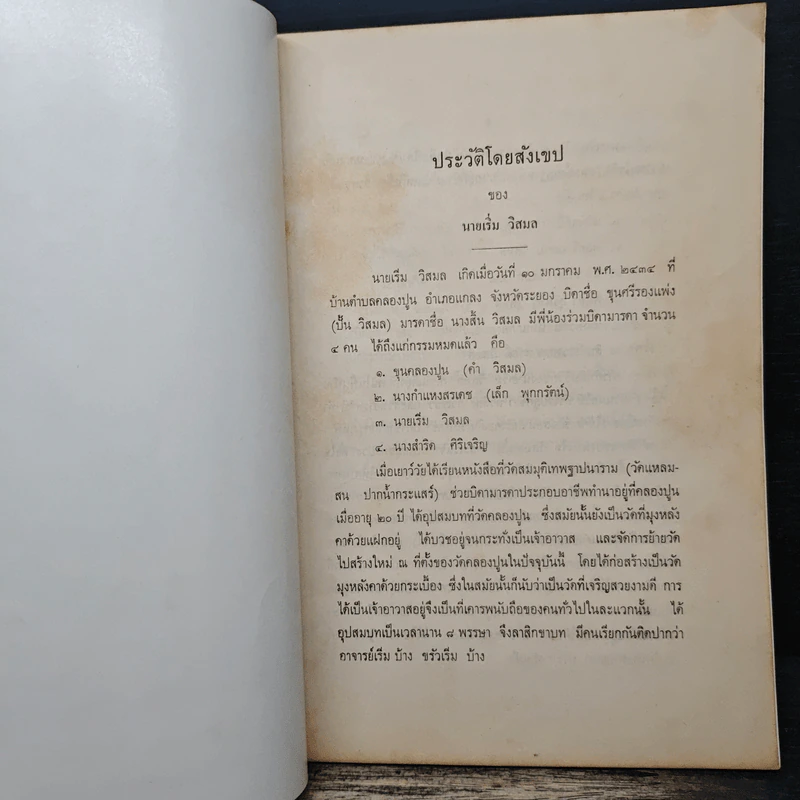 ประวัติโดยสังเขป
ของ
นายเริ่ม วิสมล
นายเริ่ม วิสมล เกิดเมื่อวันที่ ๑๐ มกราคม พ.ศ. ๒๔๓๔ ที่
บ้านตำบลคลองปูน อำเภอแกลง จังหวัดระยอง บิดาชื่อ ขุนศรีรองแพ่ง
(ปั้น วิสมล) มารดาชื่อ นางสิ้น วิสมล มีพี่น้องร่วมบิดามารดา จำนวน
๔ คน ได้ถึงแก่กรรมหมดแล้ว คือ
๑. ขุนคลองปูน (คำ วิสมล)
๒. นางกำแหงสรเดช (เล็ก พุกกรัตน์)
๓. นายเริ่ม วิสมล
๔. นางสำริด ศิริเจริญ
เมื่อเยาว์วัยได้เรียนหนังสือที่วัดสมมุติเทพฐาปนาราม (วัดแหลม-
สน ปากน้ำกระแสร์) ช่วยบิดามารดาประกอบอาชีพทำนาอยู่ที่คลองปูน
เมื่ออายุ ๒๐ ปี ได้อุปสมบทที่วัดคลองปูน ซึ่งสมัยนั้นยังเป็นวัดที่มุงหลัง
คาด้วยแฝกอยู่ ได้บวชอยู่จนกระทั่งเป็นเจ้าอาวาส และจัดการย้ายวัด
ไปสร้างใหม่ ณ ที่ตั้งของวัดคลองปูนในปัจจุบันนี้ โดยได้ก่อสร้างเป็นวัด
มุงหลังคาด้วยกระเบื้อง ซึ่งในสมัยนั้นก็นับว่าเป็นวัดที่เจริญสวยงามดี การ
ได้เป็นเจ้าอาวาสอยู่จึงเป็นที่เคารพนับถือของคนทั่วไปในละแวกนั้น ได้
อุปสมบทเป็นเวลานาน ๘ พรรษา จึงลาสิกขาบท มีคนเรียกกันติดปากว่า
อาจารย์เริ่ม บ้าง ขรัวเริ่ม บ้าง